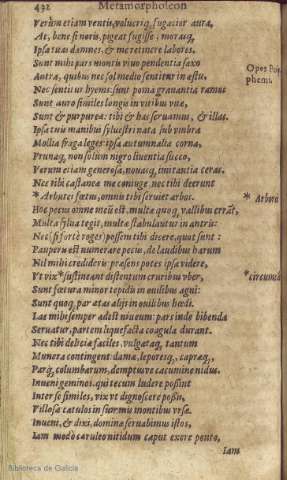 432 Metamorphoseon
Verùm etiam ventis, volucriq́; fugacior aura,
At, bene si noris, pigeat fugisse, moraſq́;
Ipsa tuas damnes, & me retinere labores.
Sunt mihi pars montis viuo pendentia saxo
Antra, quibus nec sol medio sentitur in æstu,
Nec sentitur hyems: sunt poma grauantia ramos
Sunt auro similes longis in vitibus vuæ,
Sunt & purpureæ: tibi & has seruamus, & illas.
Ipsa tuis manibus syluestri nata sub vmbra
Mollia fraga leges: ipsa autumnalia corna,
Prunaq́; non solùm nigro liuentia succo,
Verum etiam generosa, nouasq́; imitantia ceras.
Nec tibi castaneæ me coniuge, nec tibi deerunt
* Arbutei fœtus, omnis tibi seruiet arbos.
Hoc pecus omne meũ est, multæ quoq; vallibus errãt,
Multas sylua tegit, multæ stabulantur in antris:
Nec (si fortè roges) possim tibi dicere, quot sunt:
Pauperis est numerare pecus, de laudibus harum
Nil mihi credideris: præsens potes ipsa videre,
Vt vix * sustineant distentum cruribus vber,
Sunt fœtura minor tepidis in ouilibus agni:
Sunt quoq; par ætas alijs in ouilibus hœdi.
Lac mihi semper adest niueum: pars inde bibenda
Seruatur, partem liquefacta coagula durant.
Nec tibi deliciæ faciles, vulgataq́; tantum
Munera contingent: damæ, leporesq́;, capræq́;,
Parq́; columbarum, demptusve cacumine nidus.
Inueni geminos, qui tecum ludere possint
Inter se similes, vix vt dignoscere possis,
Villosæ catulos in summis montibus vrsæ.
Inueni, & dixi, dominæ seruabimus istos,
Iam modò cæruleo nitidum caput exere ponto,
Iam
Opes Poly
phemi.
* Arbute
* circum
Biblioteca de Galicia